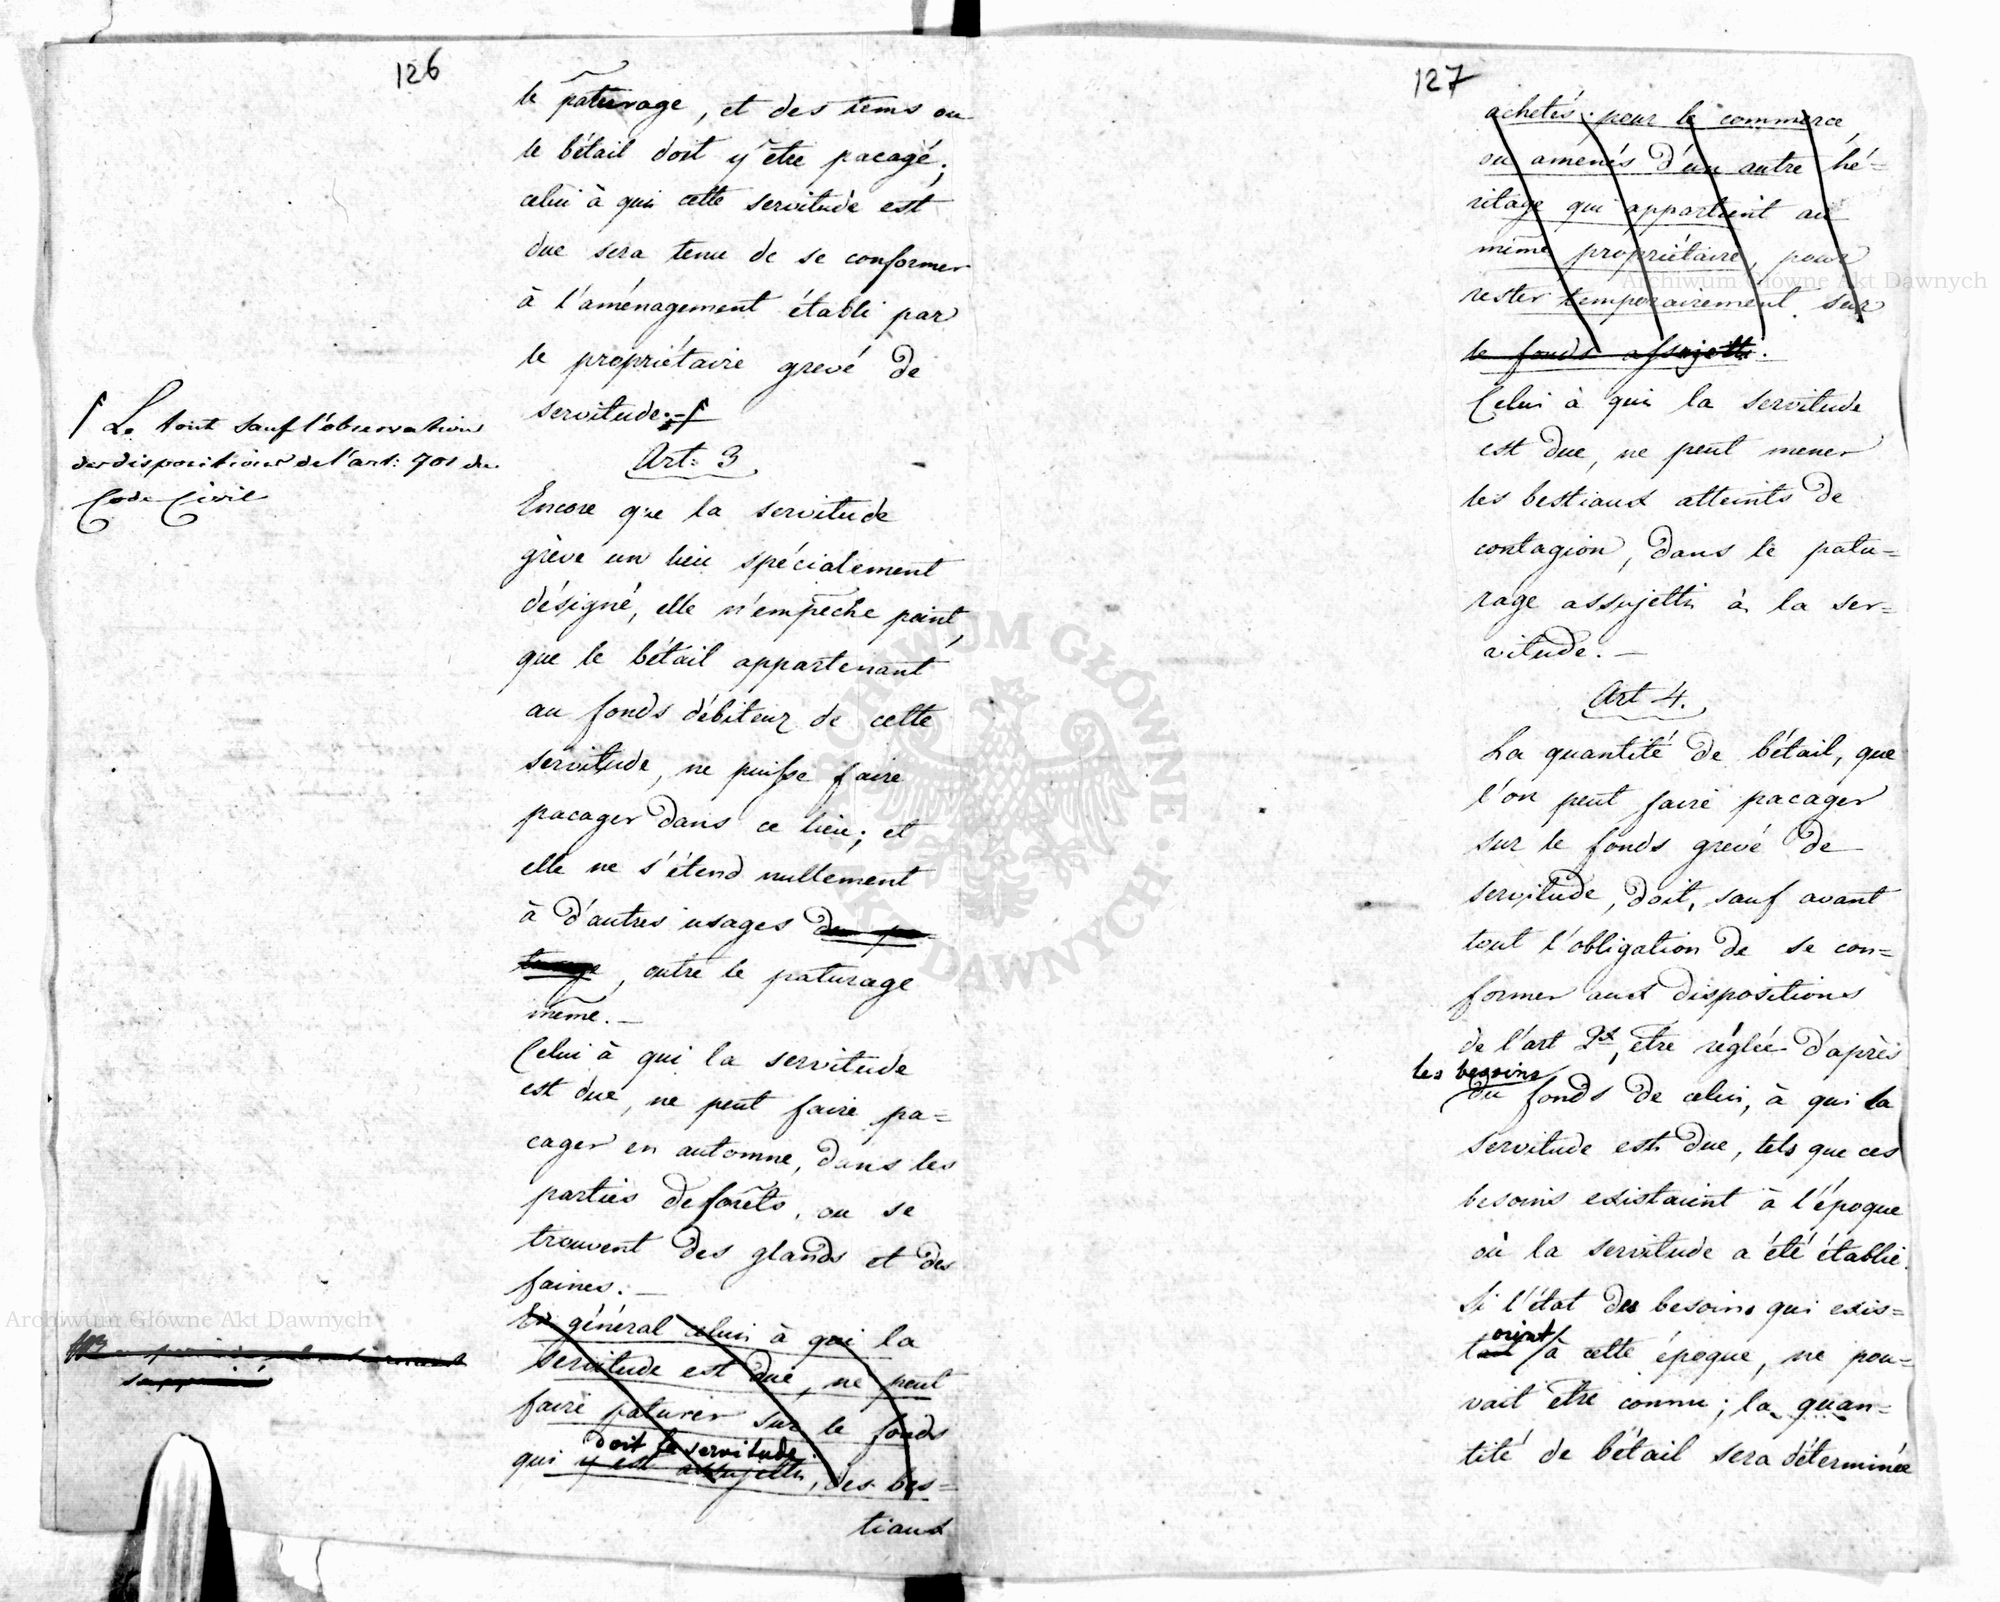 126
le pâturage, et des tems ou
le bétail doit y être pacagé;
celui à qui cette servitude est
due sera tenu de se conformer
à l'aménagement établi par
le propriétaire grevé de
servitude.-ſ
ſ Le tout sauf l'observation
des dispositions de l'art: 701 du
Code Civil
Art. 3
Encore que la servitude
grève un lieu spécialement
désigné, elle n'empêche point,
que le bétail appartenant
au fonds débiteur de cette
servitude, ne puisse faire
pacager dans ce lieu; et
elle ne s'étend nullement
à d'autres usages du pa-
turage, outre le paturage
même. —
Celui à qui la servitude
est due, ne peut faire pa=
cager en automne, dans les
parties de forêts, ou se
trouvent des glands et des
faines. —
En général celui à qui la
servitude est due, ne peut
faire paturer sur le fonds
doit la servitude
qui y est assujetti, des bes=
tiaux
supprimé
127
achetés pour le commerce,
ou aménés d'un autre hé=
ritage qui appartient au
même propriétaire, pour
rester temporairement sur
le fonds assujetti.
Celui à qui la servitude
est due, ne peut mener
les bestiaux atteints de
contagion, dans le patu=
rage assujetti à la ser=
vitude. —
Art 4.
La quantité de bétail, que
l'on peut faire pacager
sur le fonds grevé de
servitude, doit, sauf avant
tout l'obligation de se con=
former aux dispositions
de l'art, être réglée d'après
les besoins
du fonds de celui, à qui la
servitude est due, tels que ces
besoins existaient à l'époque
où la servitude a été établie.
Si l'état des besoins qui exis=
oient
tait à cette époque, ne pou=
vait être connu; la quan=
tité de bétail sera déterminée
Archiwum Główne Akt Dawnych
Archiwum Główne Akt Dawnych
ARCHIWUM GŁÓWNE AKT DAWNYCH